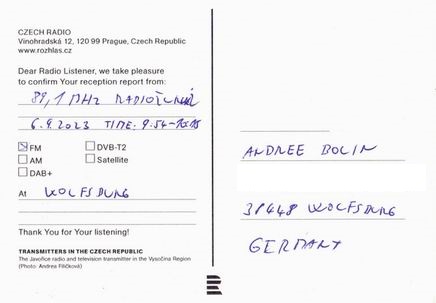 CZECH RADIO
Vinohradská 12, 120 99 Prague, Czech Republic
www.rozhlas.cz
Dear Radio Listener, we take pleasure
to confirm Your reception report from:
89,1 MHz RADIOŽURNÁL
6.9.2023 TIME: 9:54-10:15
FM
DVB-T2
AM
Satellite
DAB+
At WOLFSBURG
Thank You for Your listening!
TRANSMITTERS IN THE CZECH REPUBLIC
The Javořice radio and television transmitter in the Vysočina Region
(Photo: Andrea Filičková)
ANDREE BOLIN
38448 WOLFSBURG
GERMANY